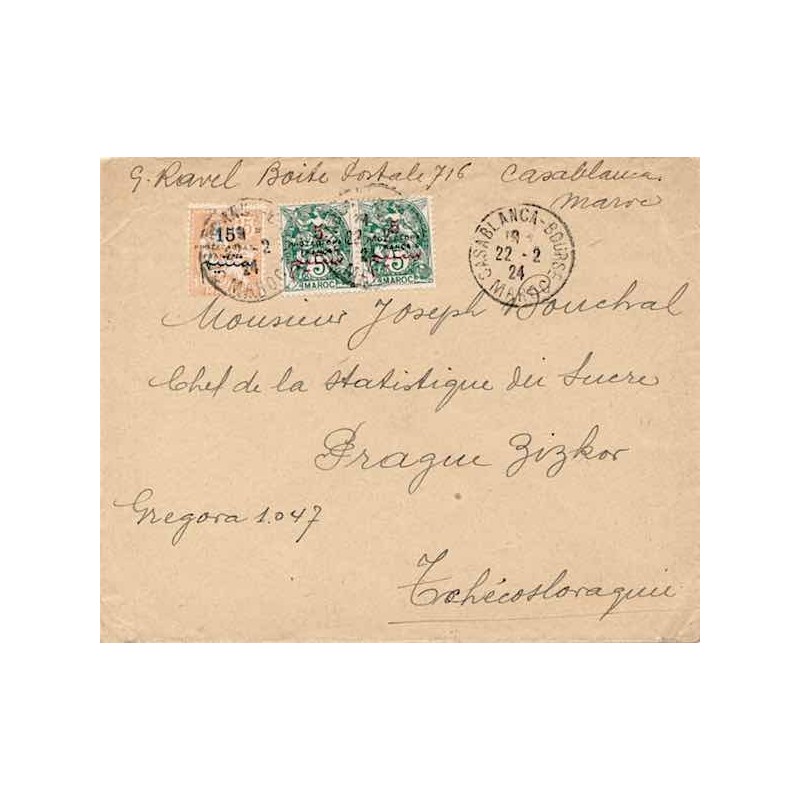 G. Ravel Boite Postale 716 Casablanca
Maroc
15
22 - 2
24
MAROC
5
5
MAROC
5
5
MAROC
CASABLANCA-BOURSE
18
22 - 2
24
MAROC
Monsieur Joseph Bouchal
Chef de la Statistique du Sucre
Prague Zizkov
Gregora 1.047
Tchécoslovaquie